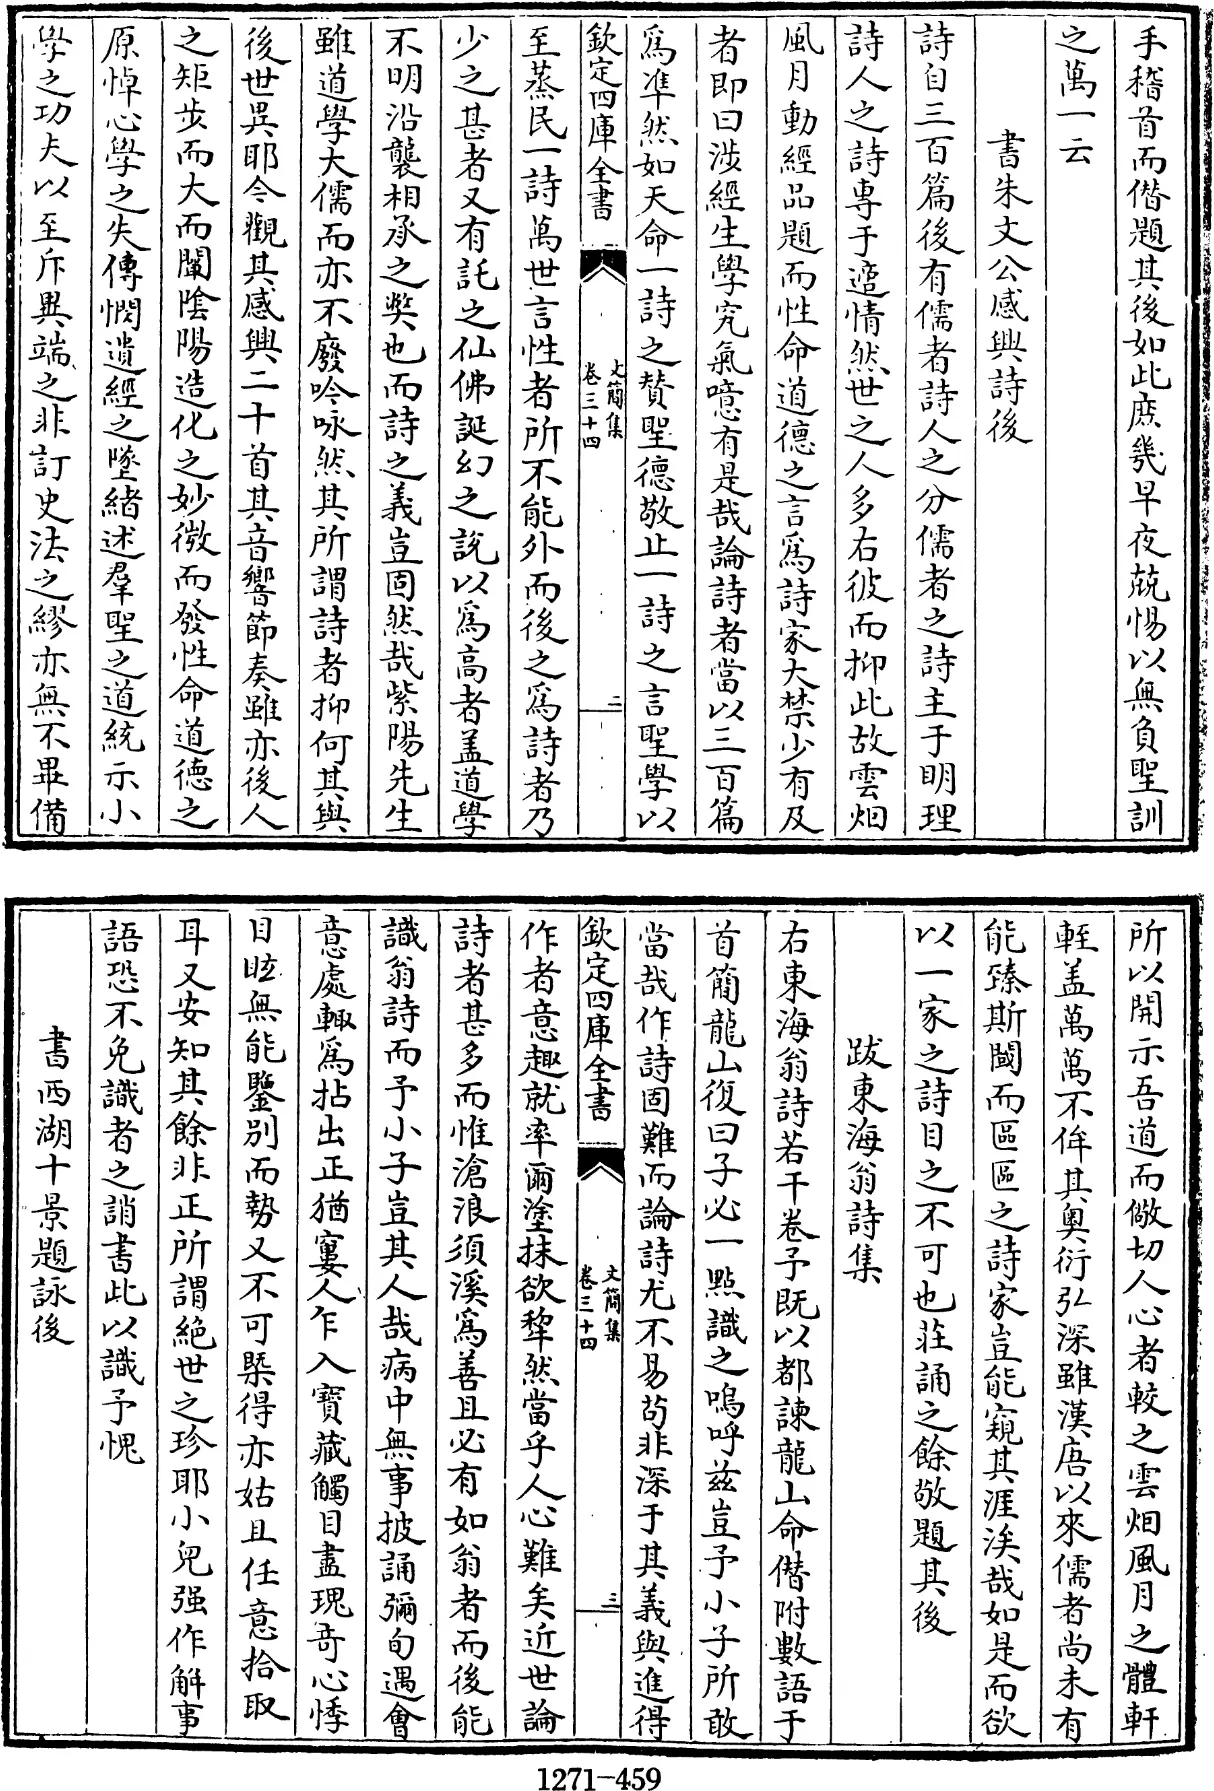 手稽首而僭題其後如此庶幾早夜兢惕以無負聖訓
之萬一云
書朱文公感興詩後
詩自三百篇後有儒者詩人之分儒者之詩主于明理
詩人之詩專于適情然世之人多右彼而抑此故雲烟
風月動經品題而性命道德之言為詩家大禁少有及
者即曰涉經生學究氣噫有是哉論詩者當以三百篇
為準然如天命一詩之賛聖德敬止一詩之言聖學以
欽定四庫全書
文簡集
卷三十四
二
至蒸民一詩萬世言性者所不能外而後之為詩者乃
少之甚者又有託之仙佛誕幻之說以為高者蓋道學
不明沿襲相承之獘也而詩之義豈固然哉紫陽先生
雖道學大儒而亦不廢吟咏然其所謂詩者抑何其與
後世異耶今觀其感興二十首其音響節奏雖亦後人
之矩步而大而闡陰陽造化之妙微而發性命道德之
原悼心學之失傳憫遺經之墜緒述羣聖之道統示小
學之功夫以至斥異端之非訂史法之繆亦無不畢備
所以開示吾道而儆切人心者較之雲烟風月之體軒
輊盖萬萬不侔其奥衍弘深雖漢唐以來儒者尚未有
能臻斯閫而區區之詩家豈能窺其涯涘哉如是而欲
以一家之詩目之不可也莊誦之餘敬題其後
跋東海翁詩集
右東海翁詩若干卷予既以都諫龍山命僭附數語于
首簡龍山復曰子必一點識之嗚呼兹豈予小子所敢
當哉作詩固難而論詩尤不易茍非深于其義與進得
欽定四庫全書
文簡集
卷三十四
三
作者意趣就率爾塗抹欲犂然當乎人心難矣近世論
詩者甚多而惟滄浪須溪為善且必有如翁者而後能
識翁詩而予小子豈其人哉病中無事披誦彌旬遇會
意處輙為拈出正猶窶人乍入寶藏觸目盡瑰奇心悸
目眩無能鑒別而勢又不可槩得亦姑且任意拾取
耳又安知其餘非正所謂絶世之珍耶小兒强作解事
語恐不免識者之誚書此以識予愧
書西湖十景題詠後
1271-459